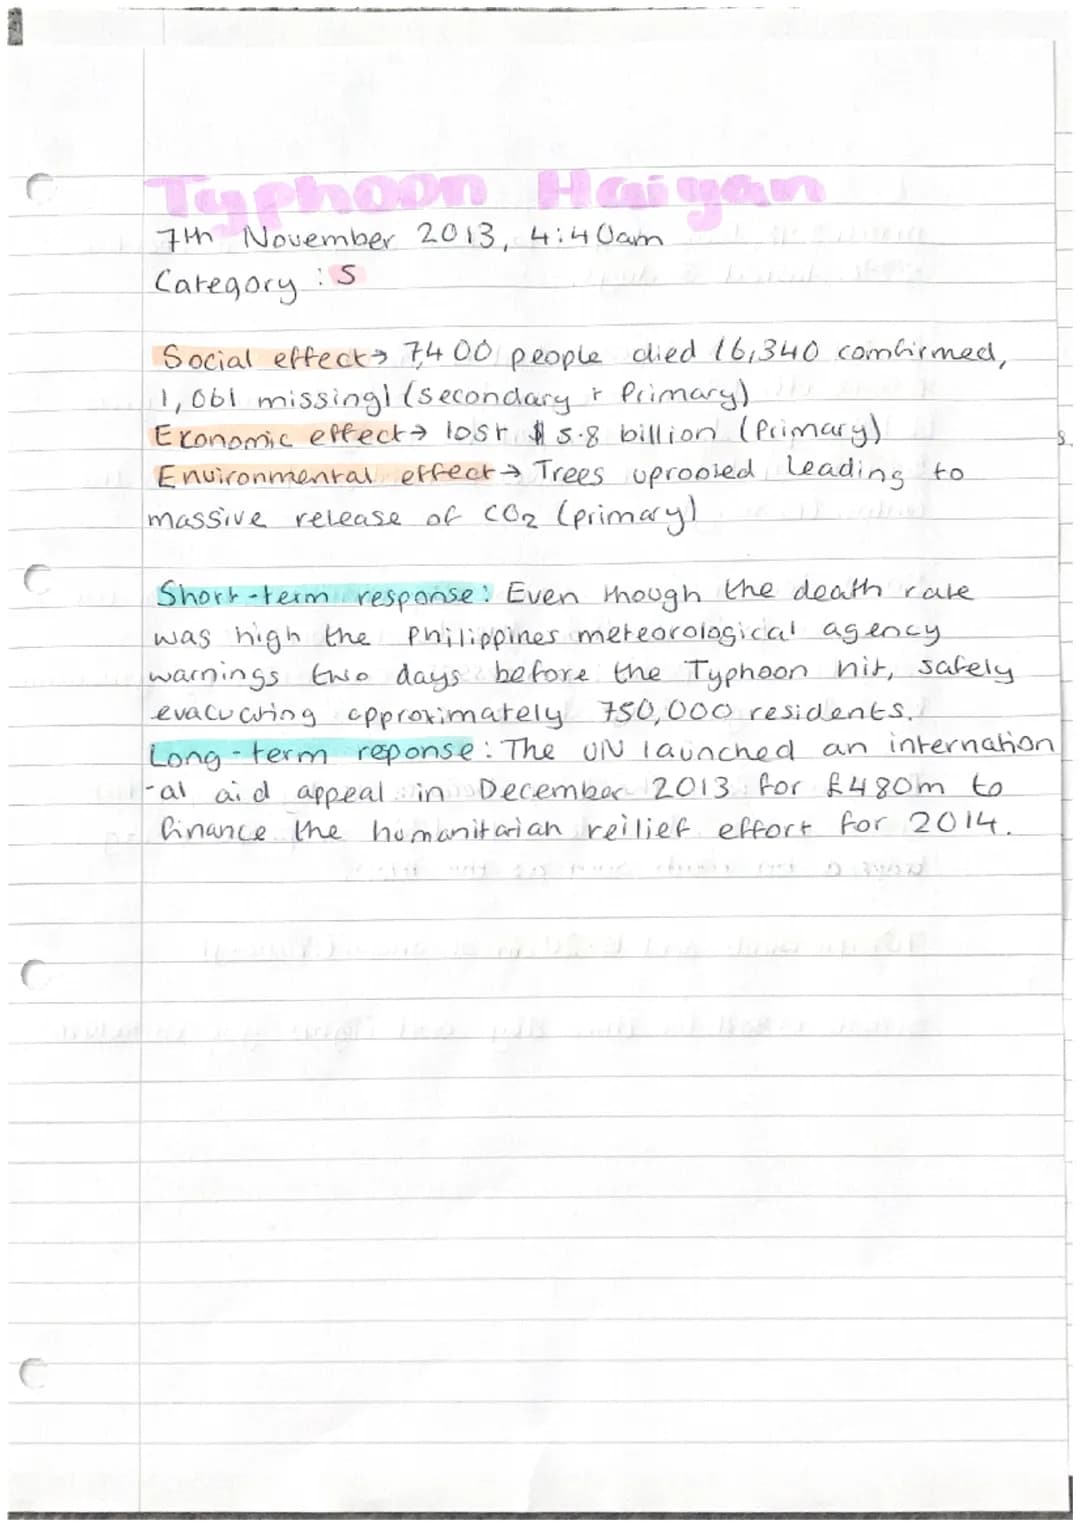 Typhoon Haiyan
7th November 2013, 4:40am
Category : 5
Social effect → 7,400 people died 16,340 comfirmed,
1,061 missing) (secondary + Primary)
Economic effect → lost $ 5.8 billion (Primary)
Environmental effect → Trees uprooted leading to
massive release of CO2 (primary)
Short-term response: Even though the death rate
was high the Philippines meteorological agency
warnings two days before the Typhoon hit, safely
evacuating approximately 750,000 residents.
Long-term reponse: The UN launched an internation
-al aid appeal in December 2013 for £480m to
finance the humanitarian reilief effort for 2014.